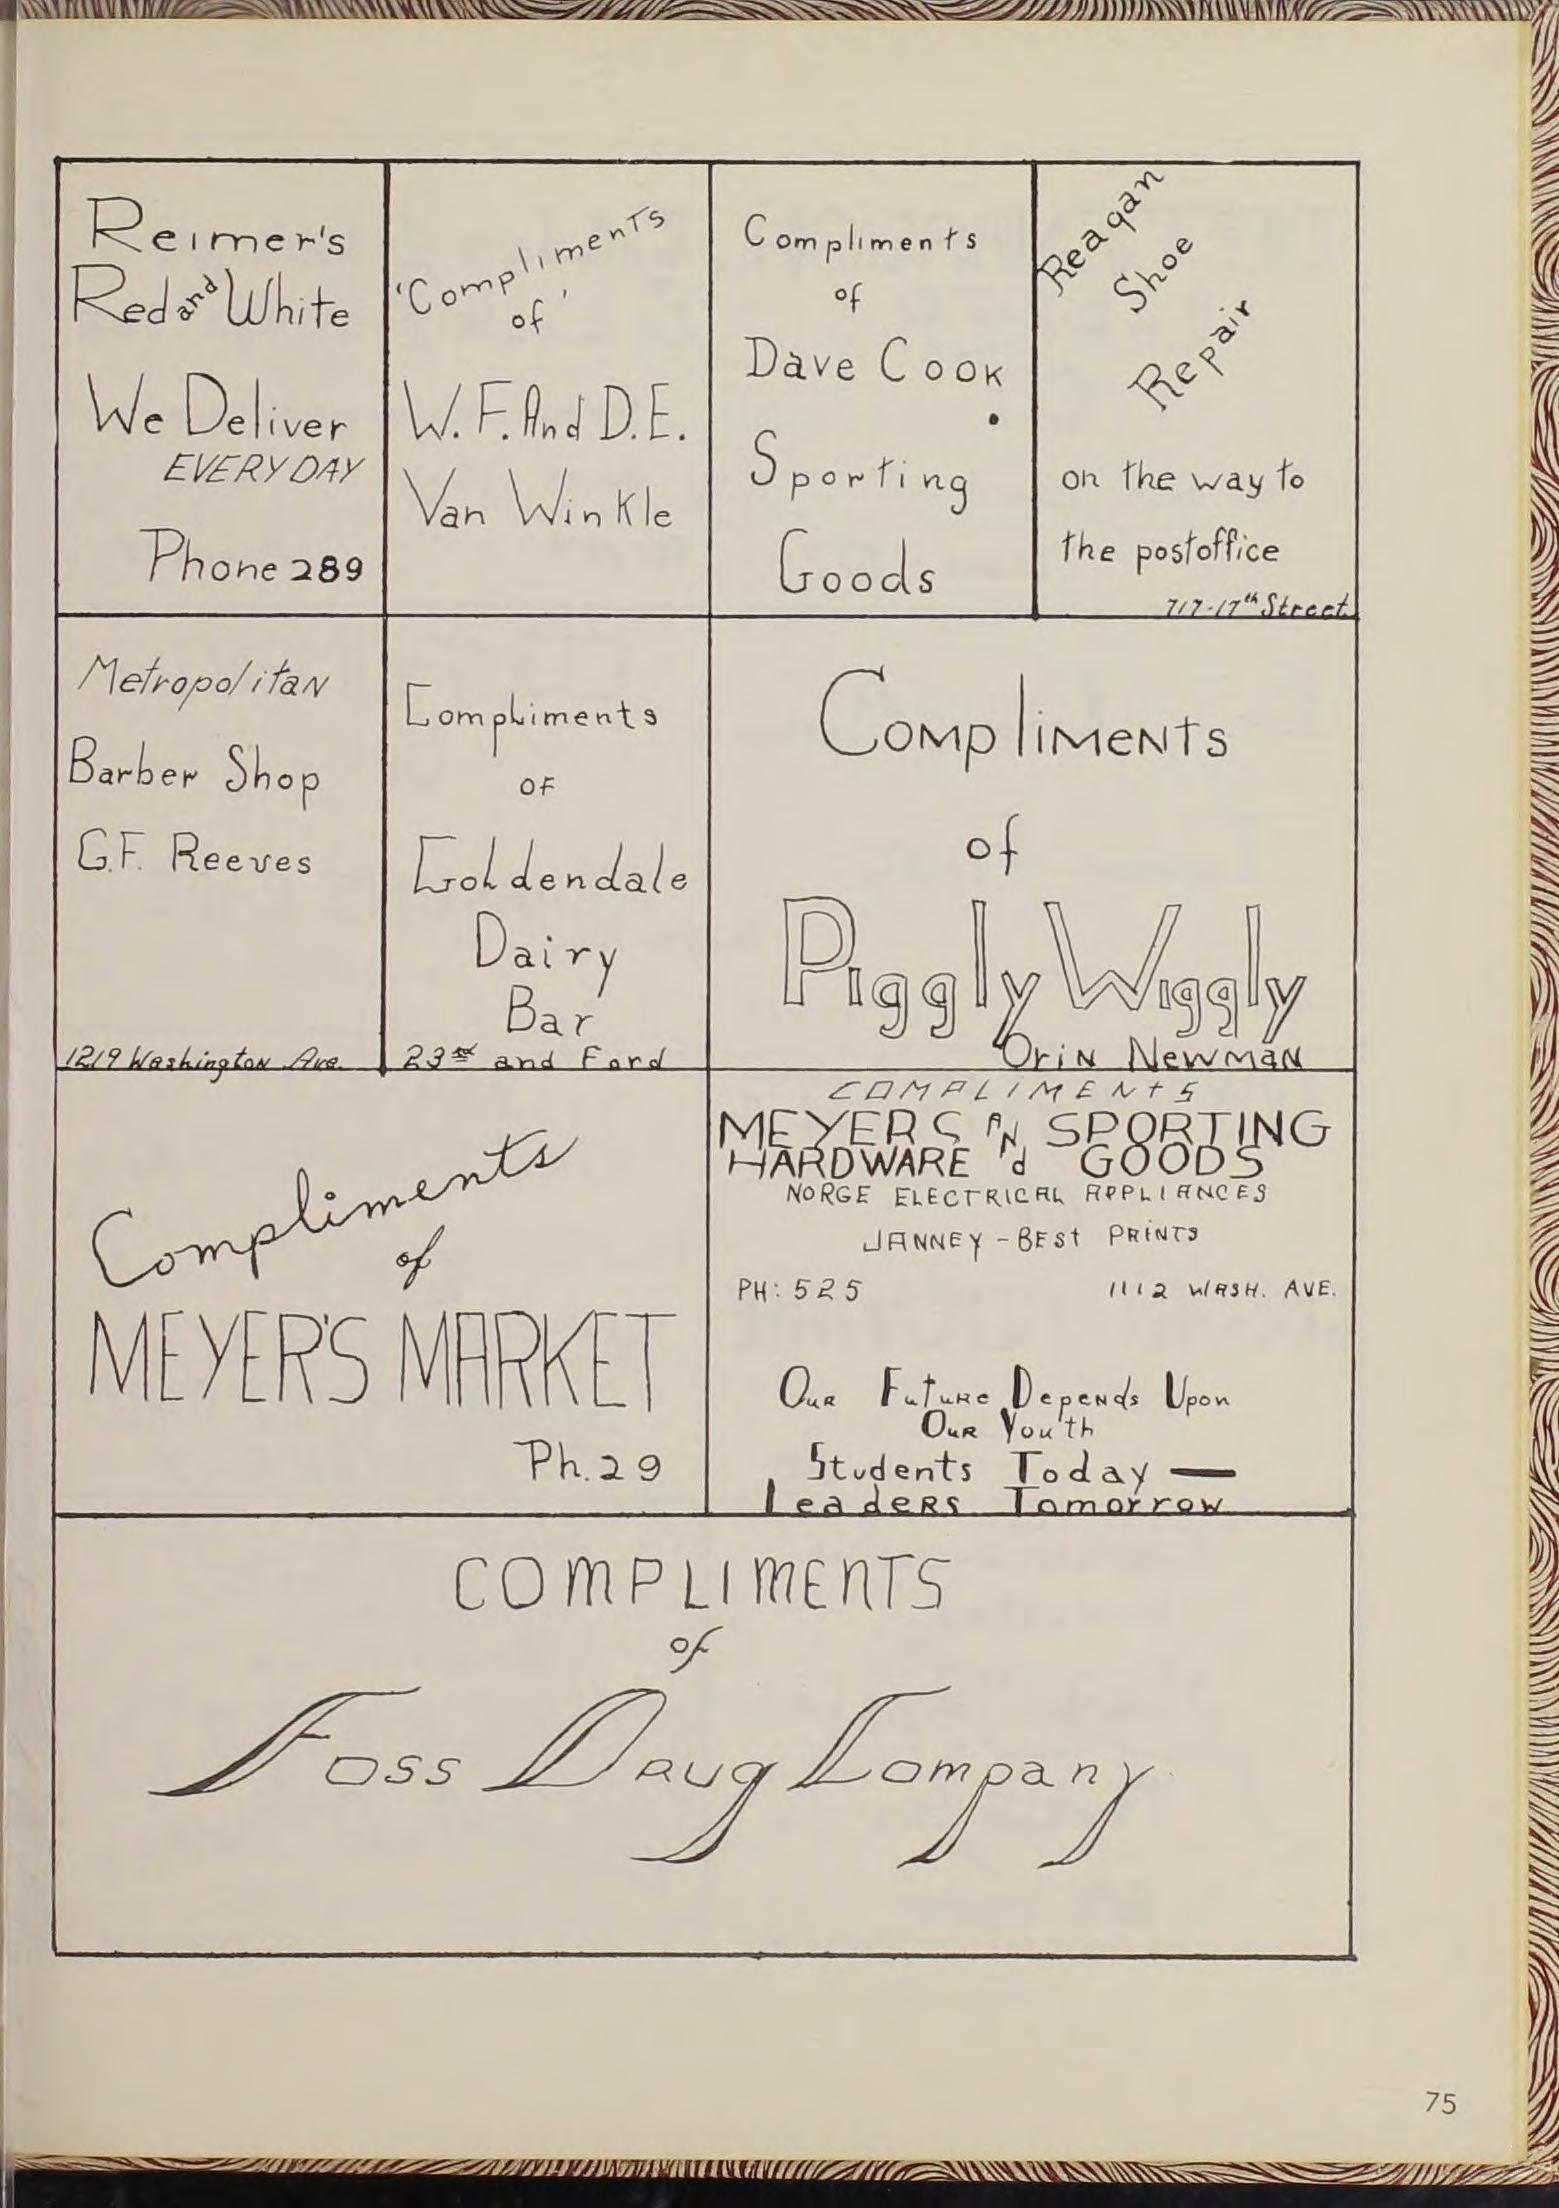 Reimer's
Red and White
We Deliver
EVERY DAY
Phone 289
'Compliments
of'
W. F. And D. E.
Van Winkle
Compliments
of
Dave Cook
Sporting
Goods
Reagan
Shoe
Repair
on the way to
the postoffice
717-17th Street
Metropolitan
Barber Shop
G.F. Reeves
1219 Washington Ave.
Compliments
OF
Goldendale
Dairy
Bar
and Ford
Compliments
of
Piggly Wiggly
Orin Newman
Compliments
of
MEYER'S MARKET
Ph. 29
COMPLIMENTS
MEYERS AND SPORTING
HARDWARE GOODS
NORGE ELECTRICAL APPLIANCES
JANNEY - BEST PRINTS
PH: 525 1112 WASH. AVE.
Our Future Depends Upon
Our Youth
Students Today —
Leaders Tomorrow
COMPLIMENTS
of
Foss Drug Company
75